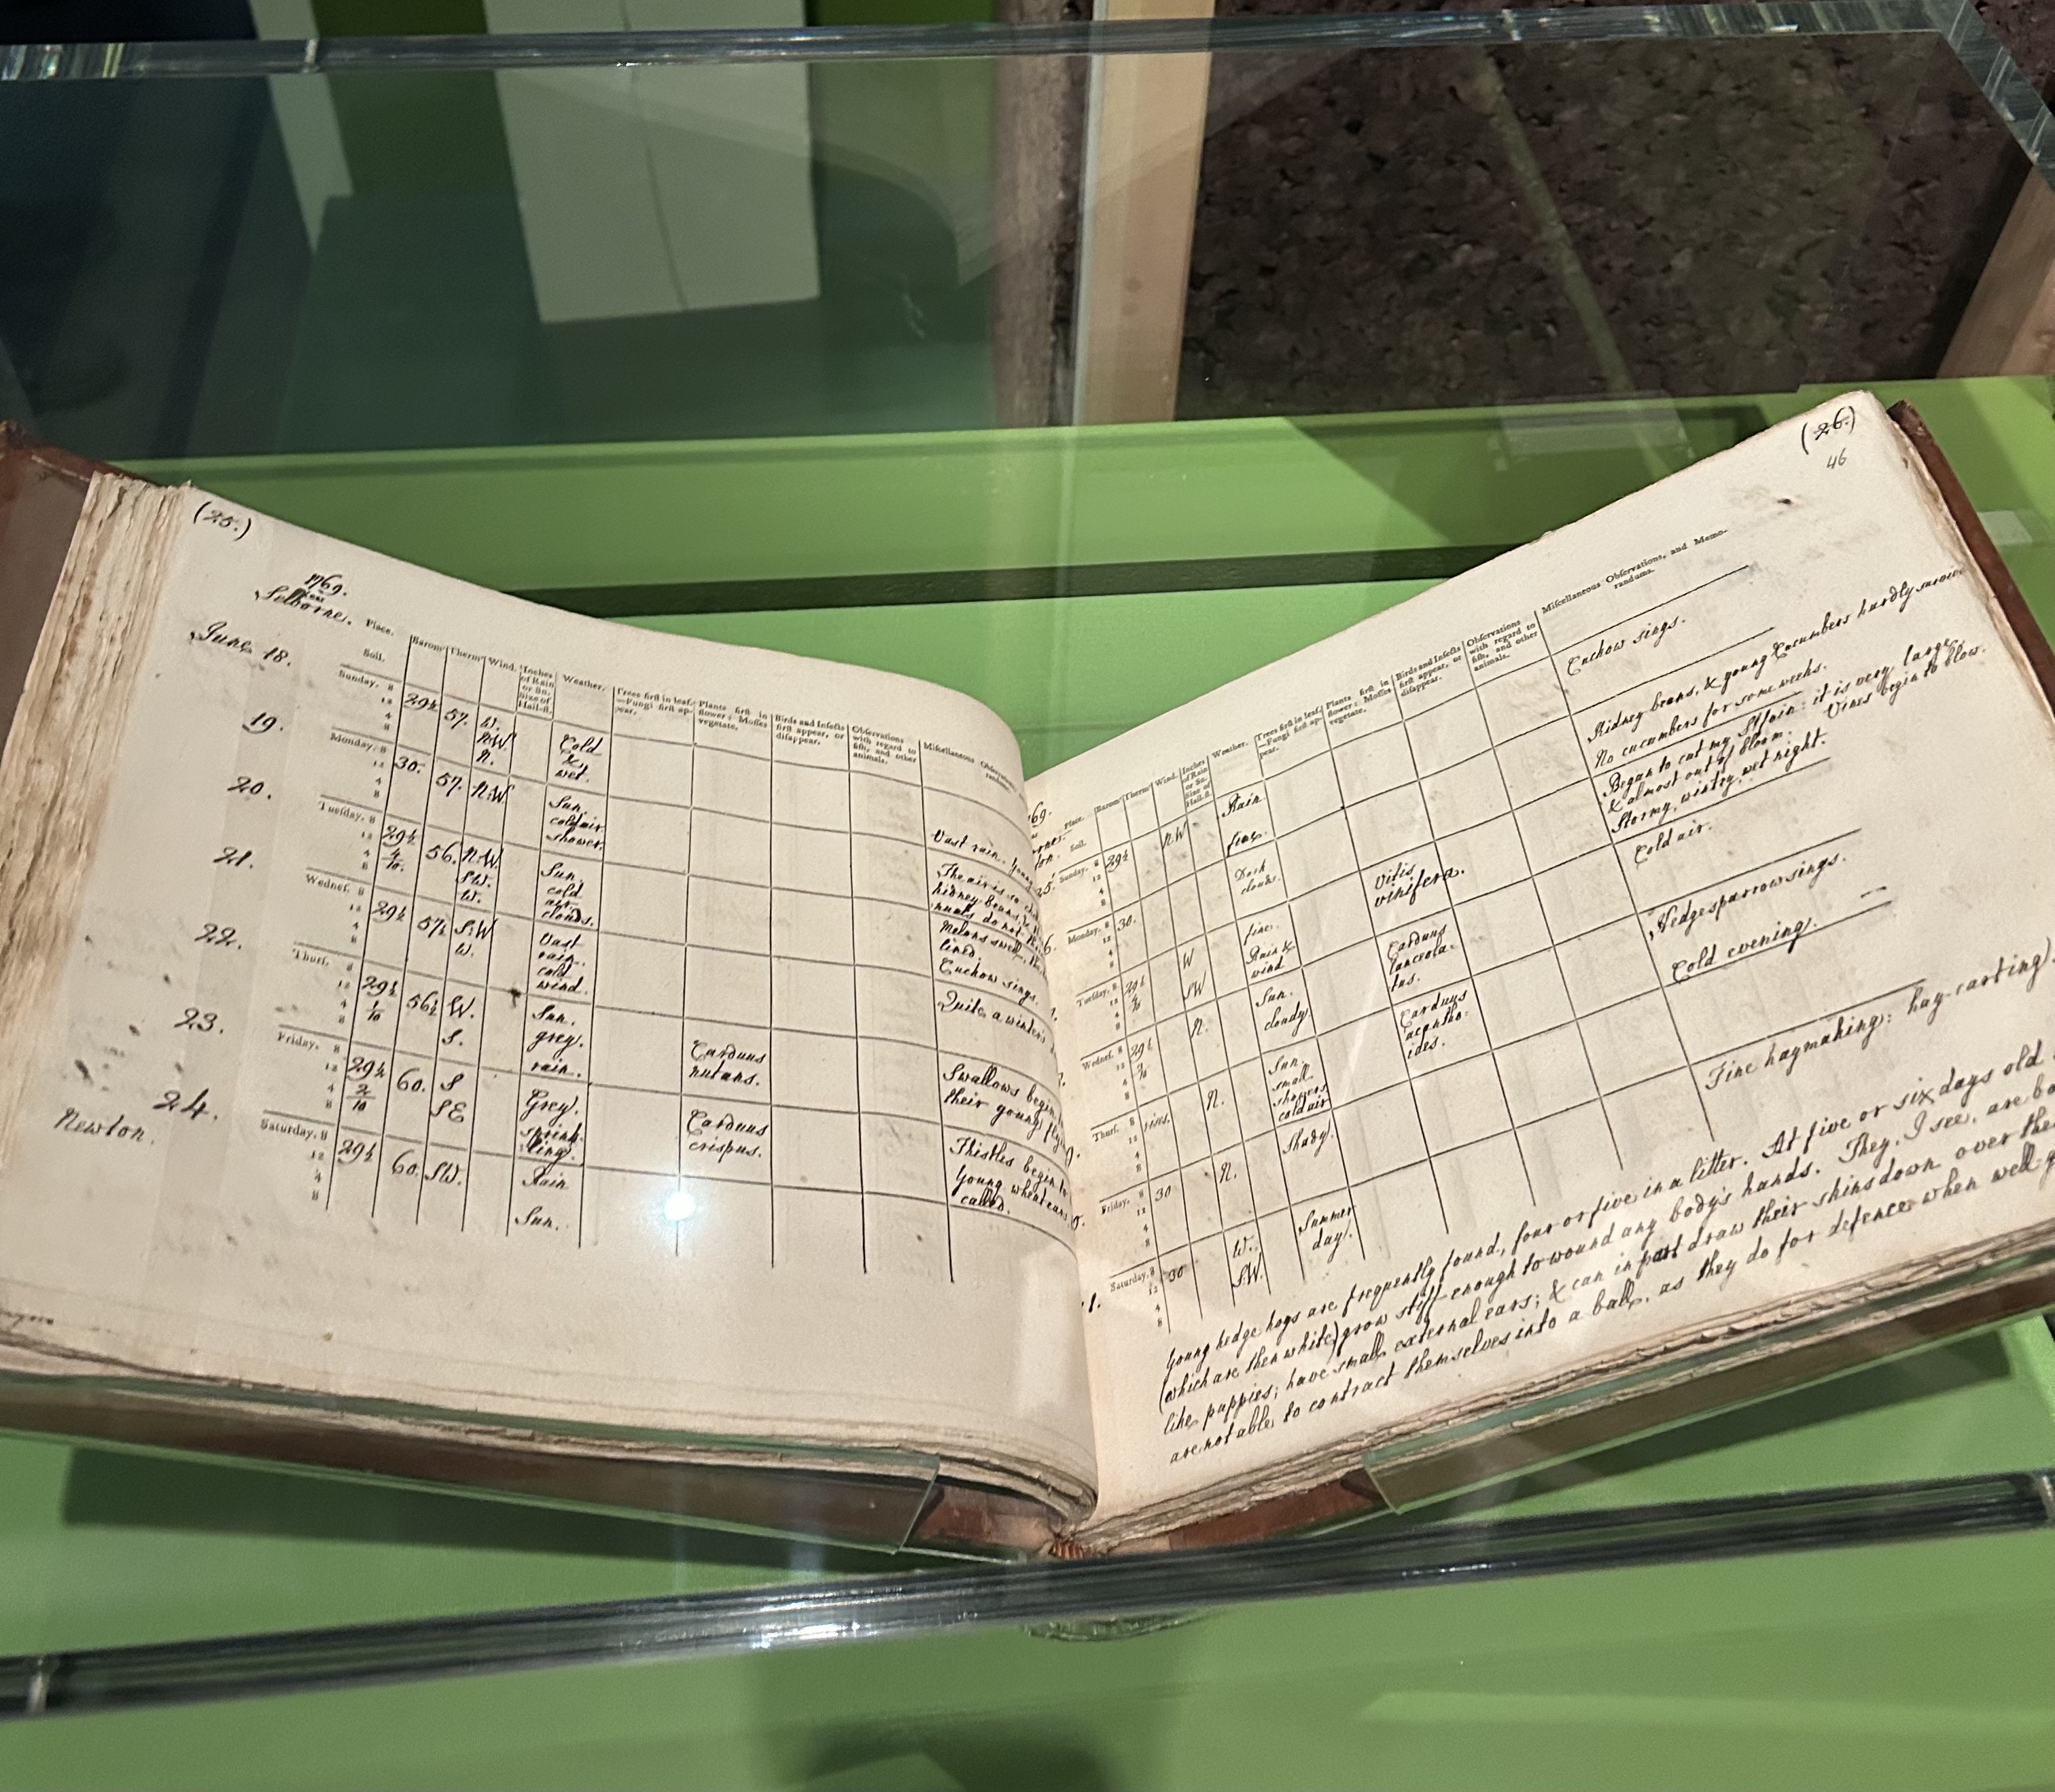 (25.)
1769.
Selborne.
Place.
Soil.
Barom
Therm
Wind.
Inches
of Rain
or Sn.
Size of
Hail-st.
Weather.
Trees first in leaf
—Fungi first ap-
pear.
Plants first in
flower: Mosses
vegetate.
Birds and Insects
first appear, or
disappear.
Observations
with regard to
fish, and other
animals.
Miscellaneous Observations
June 18.
Sunday. 8
12
4
8
29½ 57. W.
N.W.
N.
Cold
&
wet.
Vast rain. Young
19.
Monday. 8
12
4
8
30. 57. N.W
Sun.
cold air.
shower.
The air is so
kidney beans,
20.
Tuesday. 8
12
4
8
29½
4/10. 56. N.W.
S.W.
W.
Sun.
cold
air
clouds.
Melons swell,
Cuckow sings.
21.
Wednes. 8
12
4
8
29½ 57½ S.W
W.
Vast
rain.
cold
wind.
Quite a winter's
22.
Thurs. 8
12
4
8
29½
1/10 56½ W.
S.
Sun.
grey.
rain.
Carduus
nutans.
Swallows begin
their young
23.
Friday. 8
12
4
8
29½
2/10 60. S
SE
Grey.
sprink-
ling.
Carduus
crispus.
Thistles begin to
24.
Newton.
Saturday. 8
12
4
8
29½ 60. S.W.
Rain
Sun.
Young wheat ears
called.
(26.)
46
Place.
Soil.
Barom
Therm
Wind.
Inches
of Rain
or Sn.
Size of
Hail-st.
Weather.
Trees first in leaf
—Fungi first ap-
pear.
Plants first in
flower: Mosses
vegetate.
Birds and Insects
first appear, or
disappear.
Observations
with regard to
fish, and other
animals.
Miscellaneous Observations, and Memo-
randums.
Sunday. 8
12
4
8
29½ N.W
Rain
Cuckow sings.
Monday. 8
12
4
8
30.
Dark
clouds.
Vitis
vinifera.
Kidney beans, & young Cucumbers hardly survive
No cucumbers for some weeks.
Tuesday. 8
12
4
8
29½
W
SW
fine.
Rain &
wind
Carduus
lanceola-
tus.
Began to cut my St foin: it is very large
& almost out of bloom. Vines begin to blow.
Stormy, wintry, wet night.
Wednes. 8
12
4
8
29½
N.
Sun.
cloudy
Carduus
acantho-
ides.
Cold air.
Thurs. 8
12
4
8
N.
Sun.
small
showers
cold air
Hedge sparrow sings.
Friday. 8
12
4
8
30 N.
Shady.
Cold evening.
Saturday. 8
12
4
8
30 W.
S.W.
Summer
day.
Fine haymaking: hay-carting.
Young hedge hogs are frequently found, four or five in a litter. At five or six days old
(which are then white) grow stiff enough to wound any body's hands. They, I see, are
like puppies; have small external ears; & can in part draw their skins down over
are not able to contract themselves into a ball, as they do for defence when well